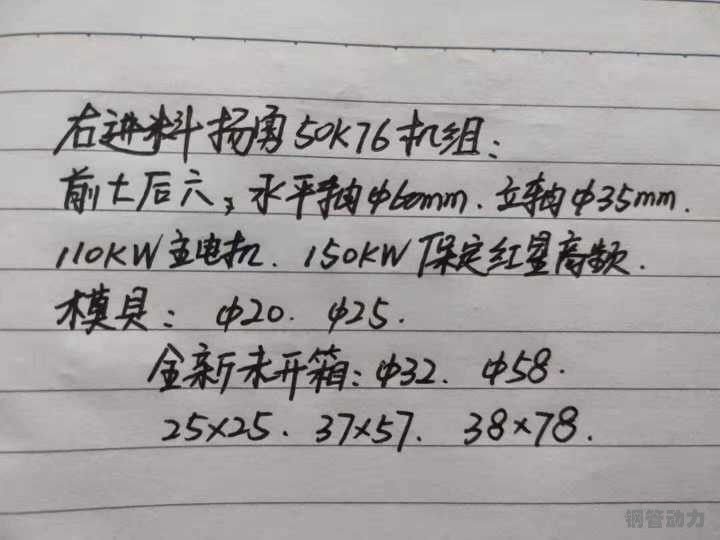 右进料扬勇50K76机组：
前七后六；水平轴φ60mm．立轴φ35mm．
110KW主电机．150KW保定红星高频．
模具：φ20．φ25．
全新未开箱：φ32．φ58．
25×25．37×57．38×78．
钢管动力